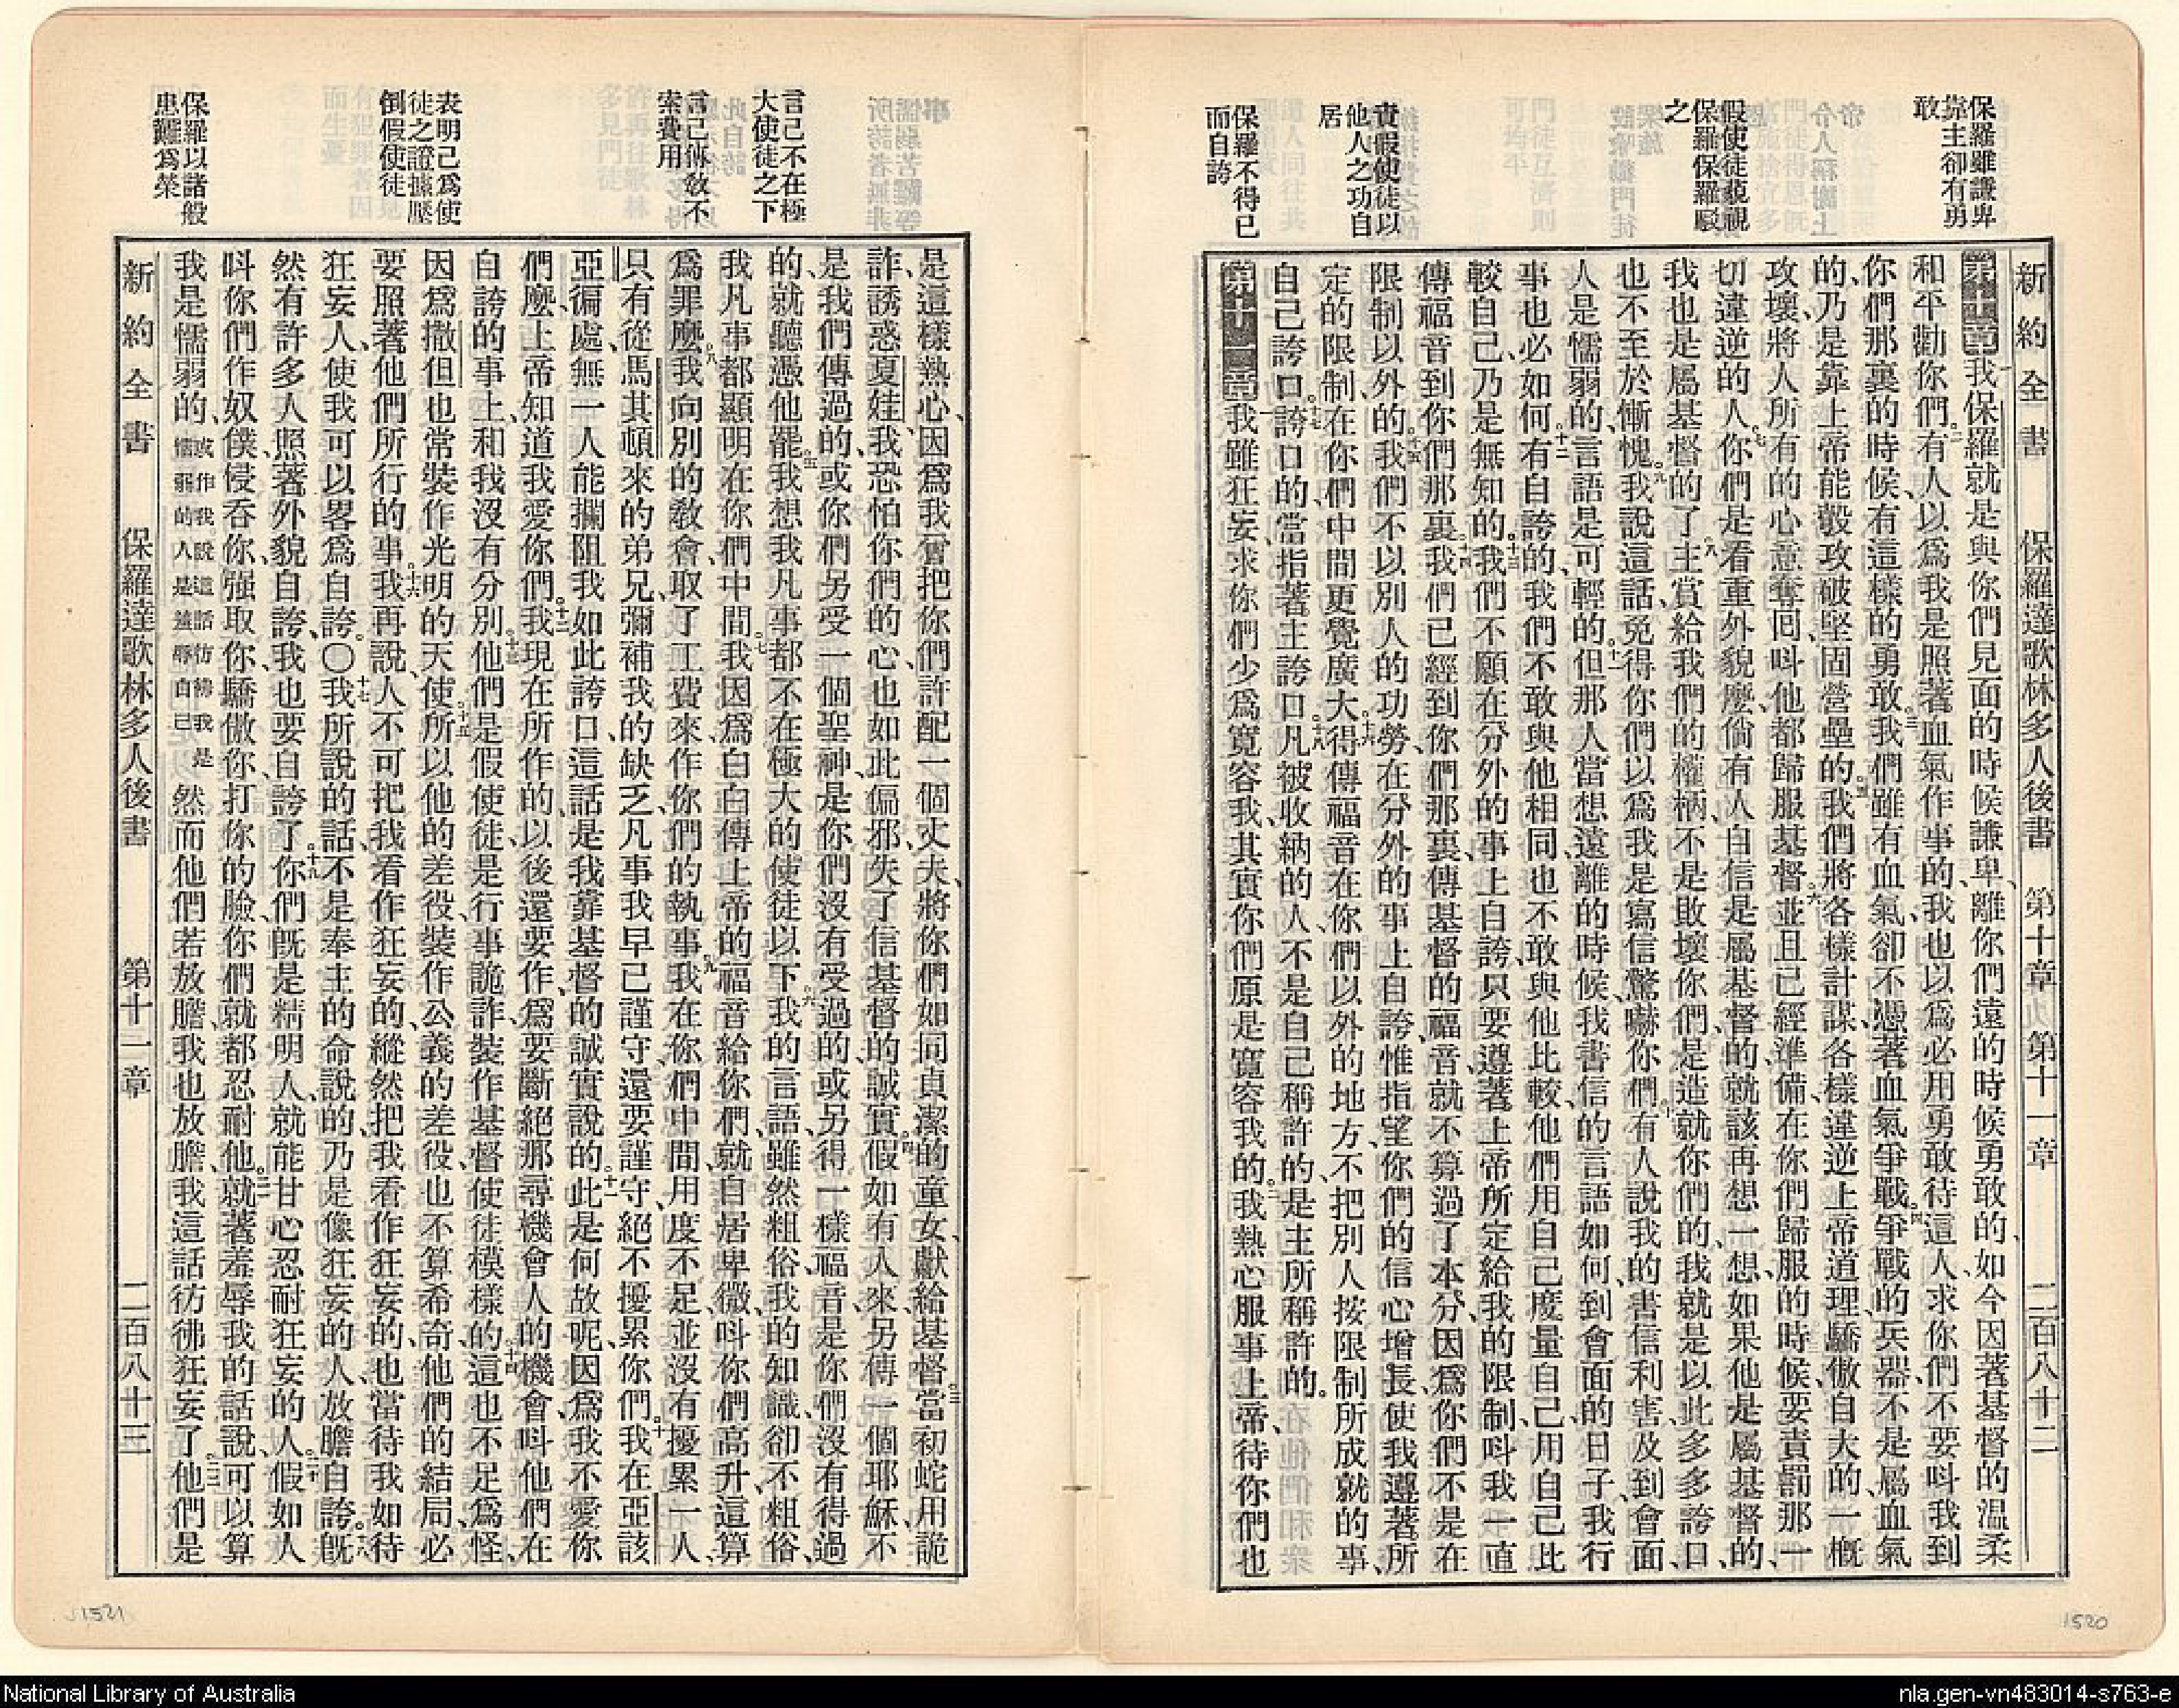 新約全書 保羅達歌林多人後書 第十章 第十一章 二百八十二
保羅雖謙卑
靠主卻有勇
敢
假使徒藐視
保羅保羅駁
之
責假使徒以
他人之功自
居
保羅不得已
而自誇
第十章我保羅就是與你們見面的時候謙卑、離你們遠的時候勇敢的、如今因著基督的温柔
和平勸你們。二有人以爲我是照著血氣作事的、我也以爲必用勇敢待這人、求你們不要呌我到
你們那裏的時候、有這樣的勇敢。三我們雖有血氣、卻不憑著血氣爭戰。四爭戰的兵器、不是屬血氣
的、乃是靠上帝能彀攻破堅固營壘的。五我們將各樣計謀、各樣違逆上帝道理、驕傲自大的、一概
攻壞、將人所有的心意奪囘、呌他都歸服基督。六並且已經準備、在你們歸服的時候、要責罰那一
切違逆的人。七你們是看重外貌麼、倘有人自信是屬基督的、就該再想一想、如果他是屬基督的、
我也是屬基督的了。八主賞給我們的權柄、不是敗壞你們、是造就你們的、我就是以此多多誇口、
也不至於慚愧。九我說這話、免得你們以爲我是寫信驚嚇你們。十有人說我的書信利害、及到會面、
人是懦弱的、言語是可輕的。十一但那人當想遠離的時候、我書信的言語如何、到會面的日子、我行
事也必如何。十二有自誇的、我們不敢與他相同、也不敢與他比較、他們用自己度量自己、用自己比
較自己、乃是無知的。十三我們不願在分外的事上自誇、只要遵著上帝所定給我的限制、呌我一直
傳福音到你們那裏。十四我們已經到你們那裏、傳基督的福音、就不算過了本分、因爲你們不是在
限制以外的。十五我們不以別人的功勞、在分外的事上自誇、惟指望你們的信心增長、使我遵著所
定的限制、在你們中間更覺廣大。十六得傳福音在你們以外的地方、不把別人按限制所成就的事、
自己誇口。十七誇口的當指著主誇口。十八凡被收納的人、不是自己稱許的、是主所稱許的。
第十一章一我雖狂妄、求你們少爲寬容我、其實你們原是寬容我的。二我熱心服事上帝、待你們也
言己不在極
大使徒之下
言己傳敎不
索費用
表明己爲使
徒之證據壓
倒假使徒
保羅以諸般
患難爲榮
是這樣熱心、因爲我曾把你們許配一個丈夫、將你們如同貞潔的童女、獻給基督。三當初蛇用詭
詐誘惑夏娃、我恐怕你們的心也如此偏邪、失了信基督的誠實。四假如有人來另傳一個耶穌、不
是我們傳過的、或你們另受一個聖神、是你們沒有受過的、或另得一樣福音、是你們沒有得過
的、就聽憑他罷。五我想我凡事都不在極大的使徒以下。六我的言語、雖然粗俗、我的知識、卻不粗俗、
我凡事都顯明在你們中間。七我因爲白白傳上帝的福音給你們、就自居卑微、呌你們高升、這算
爲罪麼。八我向別的敎會、取了工費來、作你們的執事。九我在你們中間、用度不足、並沒有擾累一人、
只有從馬其頓來的弟兄、彌補我的缺乏、凡事我早已謹守、還要謹守、絕不擾累你們。十我在亞該
亞徧處、無一人能攔阻我如此誇口、這話是我靠基督的誠實說的。十一此是何故呢、因爲我不愛你
們麼、上帝知道我愛你們。十二我現在所作的、以後還要作、爲要斷絕那尋機會人的機會、呌他們在
自誇的事上、和我沒有分別。十三他們是假使徒、是行事詭詐、裝作基督使徒模樣的。十四這也不足爲怪、
因爲撒但也常裝作光明的天使。十五所以他的差役、裝作公義的差役、也不算希奇、他們的結局、必
要照著他們所行的事。十六我再說、人不可把我看作狂妄的、縱然把我看作狂妄的、也當待我如待
狂妄人、使我可以畧爲自誇。〇十七我所說的話、不是奉主的命說的、乃是像狂妄的人放膽自誇。十八旣
然有許多人照著外貌自誇、我也要自誇了。十九你們旣是精明人、就能甘心忍耐狂妄的人。二十假如人
呌你們作奴僕、侵吞你、强取你、驕傲你、打你的臉、你們就都忍耐他。二一就著羞辱我的話說、可以算
我是懦弱的、或作我說這話彷彿我是懦弱的人是羞辱自己然而他們若放膽、我也放膽、我這話彷彿狂妄了。二二他們是
新約全書 保羅達歌林多人後書 第十一章 二百八十三
1521
1520
National Library of Australia
nla.gen-vn483014-s763-e